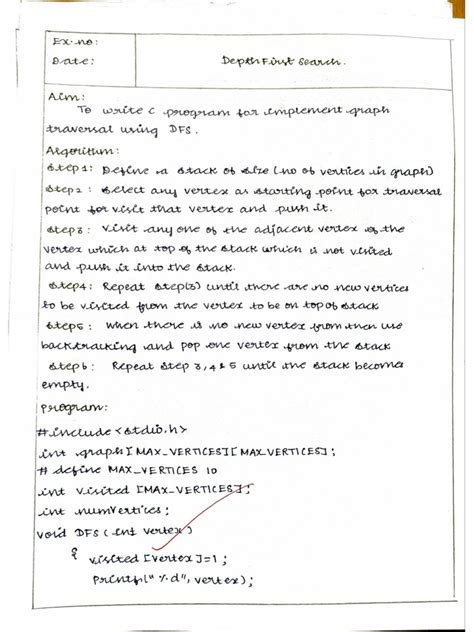 Ex.no:
Date:
Depth First Search.
Aim:
To write C program for implement graph
traversal using DFS.
Algorithm:
Step 1: Define a stack of size (no of vertices in graph)
Step 2: Select any vertex as starting point for traversal
point for visit that vertex and push it.
Step 3: Visit any one of the adjacent vertex of the
vertex which at top of the stack which is not visited
and push it into the stack.
Step 4: Repeat step(3) until there are no new vertices
to be visited from the vertex to be on top of stack
Step 5: When there is no new vertex from then use
backtracking and pop one vertex from the stack
Step 6: Repeat step 3,4 & 5 until the stack becomes
empty.
Program:
#include <stdio.h>
int graph [MAX_VERTICES][MAX_VERTICES];
# define MAX_VERTICES 10
int visited [MAX_VERTICES];
int numVertices;
void DFS (int vertex)
{ visited [vertex]=1;
printf(" %d", vertex);